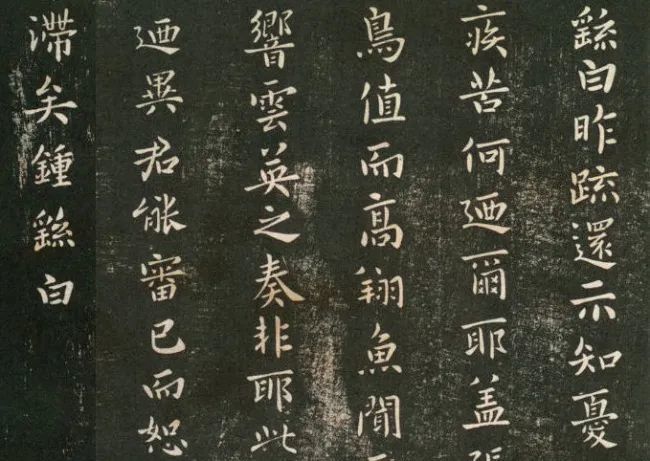 繇白昨疏還示知憂
疾苦何迺爾耶蓋張
鳥值而高翔魚聞
響雲英之奏非耶此
迺異君能審已而恕
滯矣鍾繇白